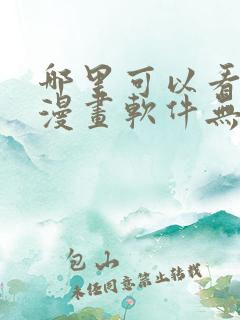 哪里可以看
漫畫軟件無
包山
未经同意禁止转载